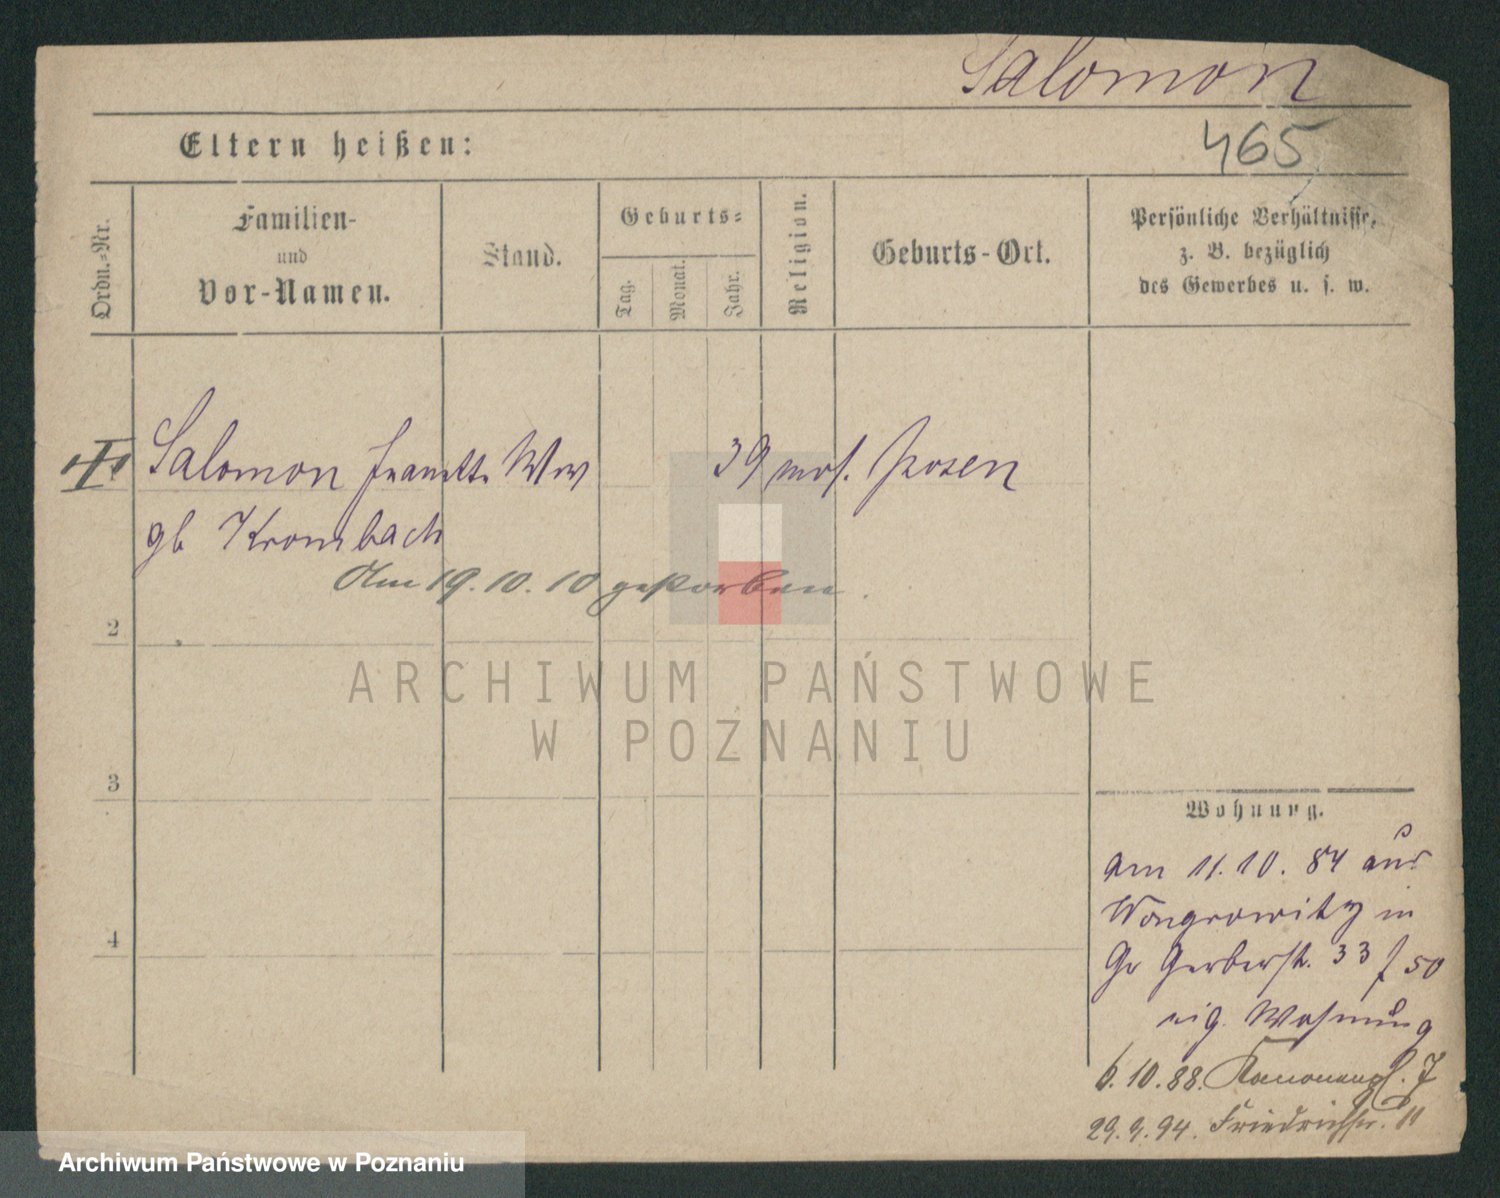 Salomon
465
Eltern heißen:
Ordn.-Nr.
Familien-
und
Vor-Namen.
Stand.
Geburts-
Tag.
Monat.
Jahr.
Religion.
Geburts-Ort.
Persönliche Verhältnisse,
z. B. bezüglich
des Gewerbes u. s. w.
Salomon Ww 39 mos. Posen
gb Krombach
Am 19.10.10 gestorben.
2
3
4
Wohnung.
am 11.10.84 aus
Wongrowitz in
Gr Gerberstr. 33 f 50
eig. Wohnung
6.10.88. Kanonenpl. 7
29.9.94. Friedrichstr. 11
ARCHIWUM PAŃSTWOWE
W POZNANIU
Archiwum Państwowe w Poznaniu